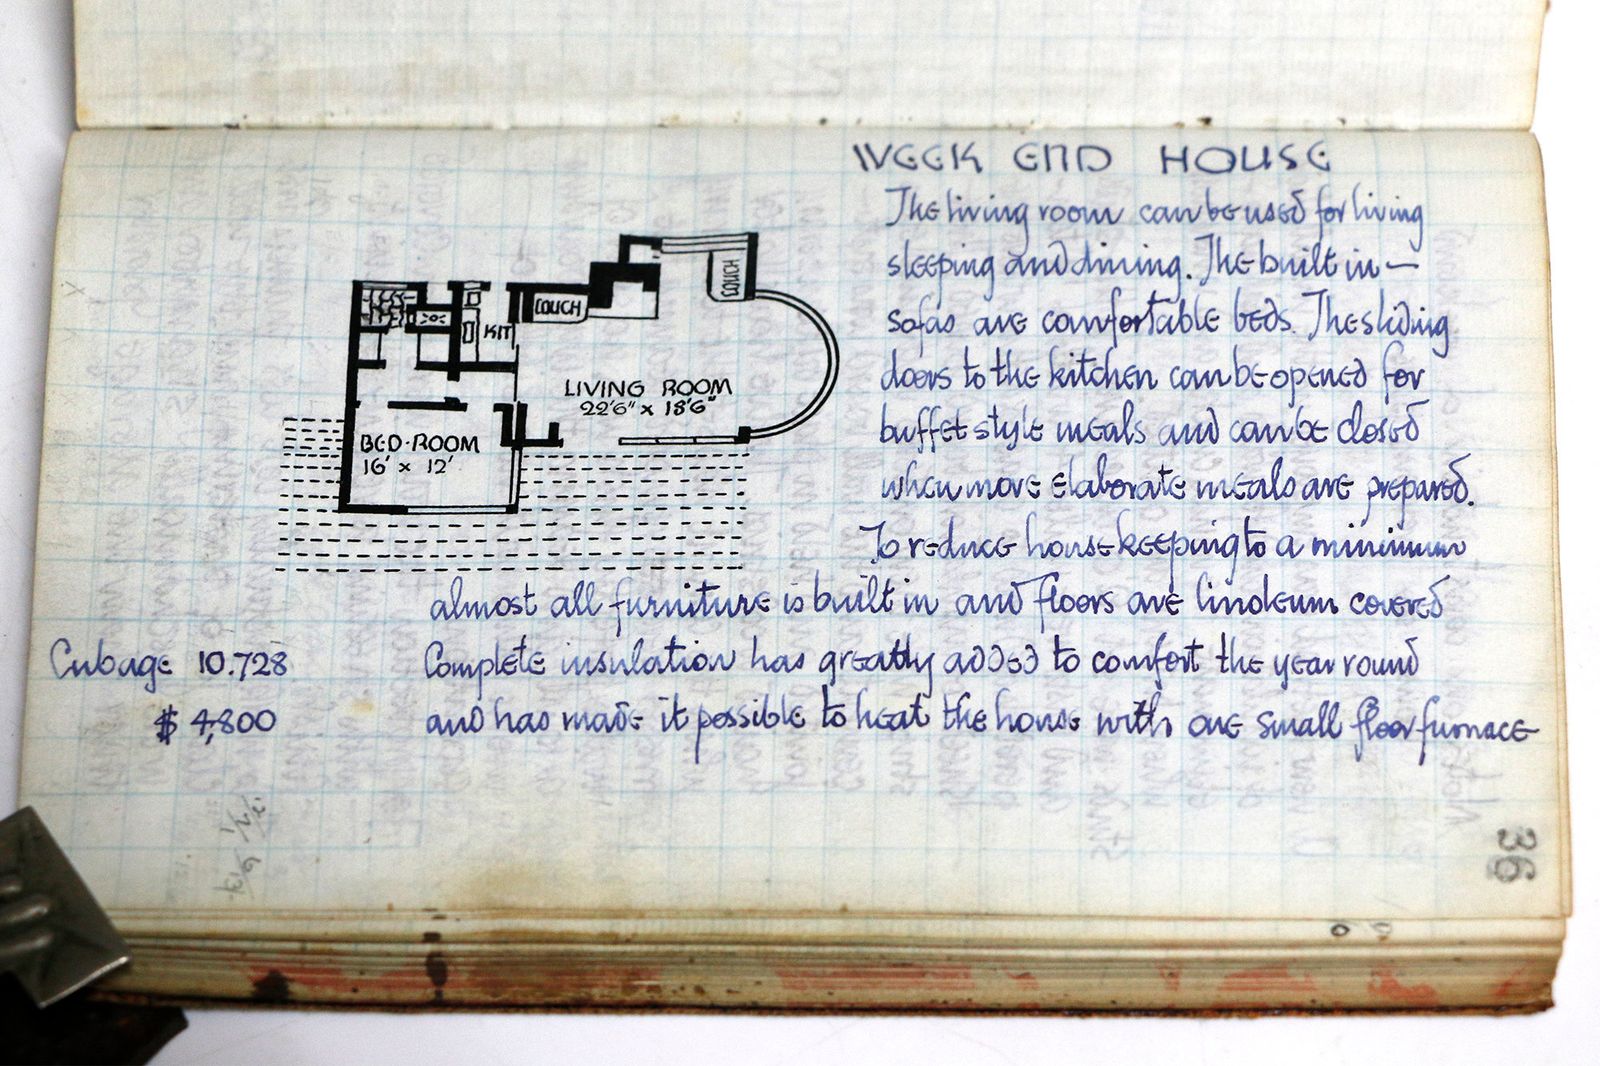 WEEK END HOUSE
The living room can be used for living
sleeping and dining. The built in —
sofas are comfortable beds. The sliding
doors to the kitchen can be opened for
buffet style meals and can be closed
when more elaborate meals are prepared.
To reduce housekeeping to a minimum
almost all furniture is built in and floors are linoleum covered
Complete insulation has greatly added to comfort the year round
and has made it possible to heat the house with one small floor furnace
Cubage 10.728
$ 4,800
COUCH
COUCH
KIT
LIVING ROOM
22'6" x 18'6"
BED-ROOM
16' x 12'
36